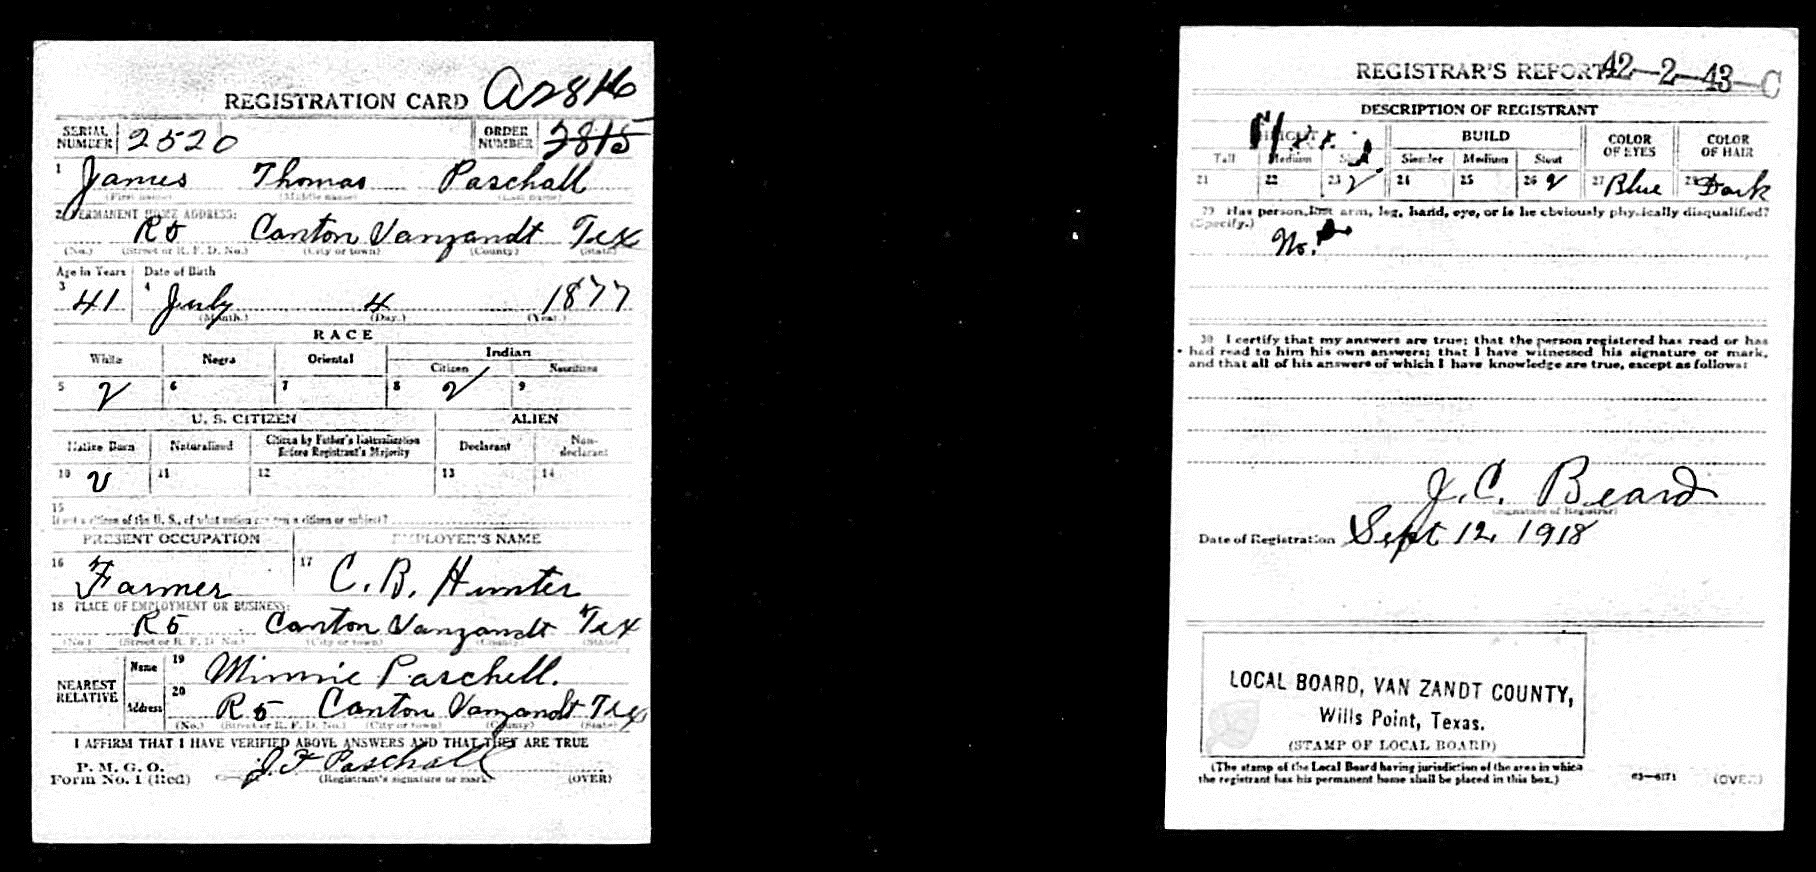 REGISTRATION CARD A2816
SERIAL NUMBER 2520 ORDER NUMBER 2815
1 James Thomas Paschall
(First name) (Middle name) (Last name)
2 PERMANENT HOME ADDRESS:
R5 Canton Vanzandt Tex
(No.) (Street or R. F. D. No.) (City or town) (County) (State)
Age in Years Date of Birth
3 41 4 July 4 1877
(Month.) (Day.) (Year.)
RACE
White Negro Oriental Indian
Citizen Noncitizen
5 6 7 8 9
U. S. CITIZEN ALIEN
Native Born Naturalized Citizen by Father's Naturalization Before Registrant's Majority Declarant Non-declarant
10 11 12 13 14
15
If not a citizen of the U. S., of what nation are you a citizen or subject?
PRESENT OCCUPATION EMPLOYER'S NAME
16 Farmer 17 C. B. Hunter
18 PLACE OF EMPLOYMENT OR BUSINESS:
R5 Canton Vanzandt Tex
(No.) (Street or R. F. D. No.) (City or town) (County) (State)
NEAREST RELATIVE Name 19 Minnie Paschell.
Address 20 R5 Canton Vanzandt Tex
(No.) (Street or R. F. D. No.) (City or town) (County) (State)
I AFFIRM THAT I HAVE VERIFIED ABOVE ANSWERS AND THAT THEY ARE TRUE
P. M. G. O.
Form No. 1 (Red) J. T. Paschall
(Registrant's signature or mark) (OVER)
REGISTRAR'S REPORT 42-2-43-C
DESCRIPTION OF REGISTRANT
HEIGHT BUILD COLOR OF EYES COLOR OF HAIR
Tall Medium Short Slender Medium Stout
21 22 23 24 25 26 27 Blue 28 Dark
29 Has person lost arm, leg, hand, eye, or is he obviously physically disqualified?
(Specify.) No.
30 I certify that my answers are true; that the person registered has read or has
had read to him his own answers; that I have witnessed his signature or mark,
and that all of his answers of which I have knowledge are true, except as follows:
J. C. Beard
(Signature of Registrar)
Date of Registration Sept 12, 1918
LOCAL BOARD, VAN ZANDT COUNTY,
Wills Point, Texas.
(STAMP OF LOCAL BOARD)
(The stamp of the Local Board having jurisdiction of the area in which
the registrant has his permanent home shall be placed in this box.)
03—6171 (OVER)